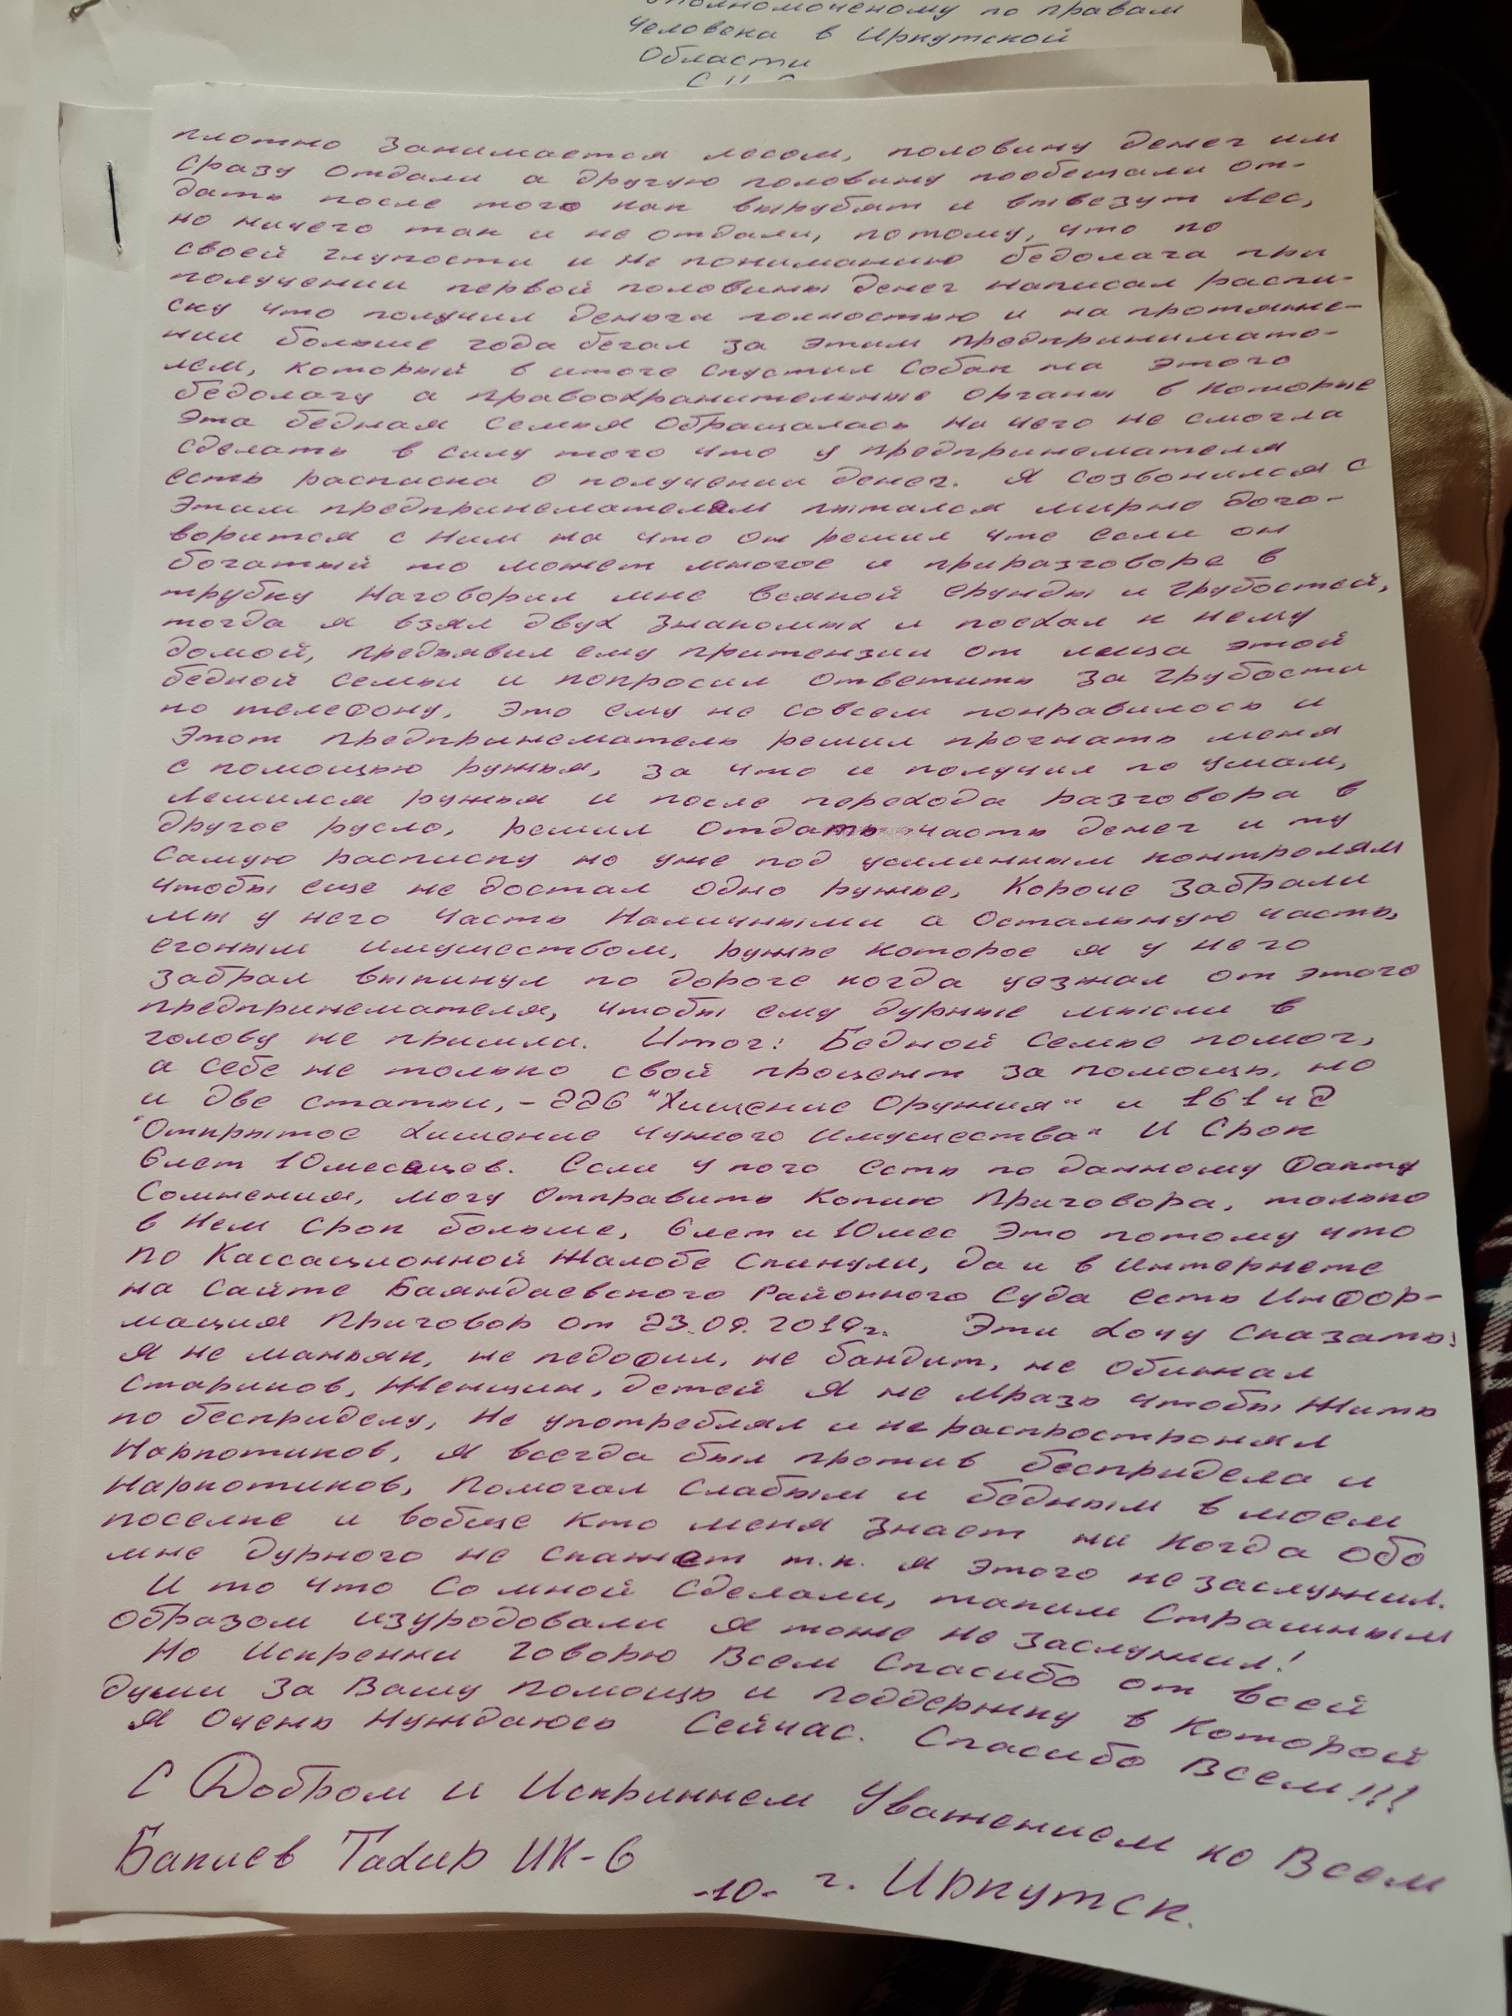 полномоченому по правам
человека в Иркутской
Области
плотно занимается лесом, половину денег им
сразу отдали а другую половину пообещали от-
дать после того как вырубят и вывезут лес,
но ничего так и не отдали, потому, что по
своей глупости и не пониманию бедолага при
получении первой половины денег написал распи-
ску что получил деньги полностью и на протяже-
нии больше года бегал за этим предпринимате-
лем, который в итоге спустил собак на этого
бедолагу а правоохранительные органы в которые
эта бедная семья обращалась ни чего не смогла
сделать в силу того что у предпринемателя
есть расписка о получении денег. Я созвонился с
этим предпринемателем пытался мирно дого-
ворится с ним на что он решил что если он
богатый то может многое и приразговоре в
трубку наговорил мне всякой ерунды и грубостей,
тогда я взял двух знакомых и поехал к нему
домой, предъявил ему притензии от лица этой
бедной семьи и попросил ответить за грубости
по телефону. Это ему не совсем понравилось и
этот предпринематель решил прогнать меня
с помощью ружья, за что и получил по ушам,
лешился ружья и после перехода разговора в
другое русло, решил отдать часть денег и ту
самую расписку но уже под усиленным контролям
чтобы еще не достал одно ружье, Короче забрали
мы у него часть наличными а остальную часть,
егоным имуществом, ружье которое я у него
забрал выкинул по дороге когда уезжал от этого
предпринемателя, чтобы ему дурные мысли в
голову не пришли. Итог: Бедной семье помог,
а себе не только свой процент за помощь, но
и две статьи, - 226 "Хищение Оружия" и 161 ч 2
"Открытое хищение чужого имущества" И Срок
6 лет 10 месяцев. Если у кого есть по данному факту
Сомнения, могу отправить Копию Приговора, только
в нем срок больше, 6 лет и 10 мес это потому что
по Кассационной Жалобе Скинули, да и в интернете
на сайте Баяндаевского Районного Суда есть Инфор-
мация Приговор от 23.09.2019г. Эти хочу сказать:
Я не маньяк, не педофил, не бандит, не обижал
Стариков, Женщин, детей Я не Мразь чтобы Жить
по бесприделу, Не употреблял и не распространял
Наркотиков, Я всегда был против бесприцела и
Наркотиков, Помогал слабым и бедным в моем
поселке и вобще кто меня знает ни когда обо
мне дурного не скажет т.к. я этого не заслужил.
И то что со мной сделали, таким Страшным
образом изуродовали я тоже не заслужил!
Но Искренни говорю Всем Спасибо от всей
души за Вашу помощь и поддержку в Которой
Я Очень Нуждаюсь Сейчас. Спасибо Всем!!!
С Добром и Искриннем Уважением ко Всем
Бакиев Тахир ИК-6
-10- г. Иркутск.